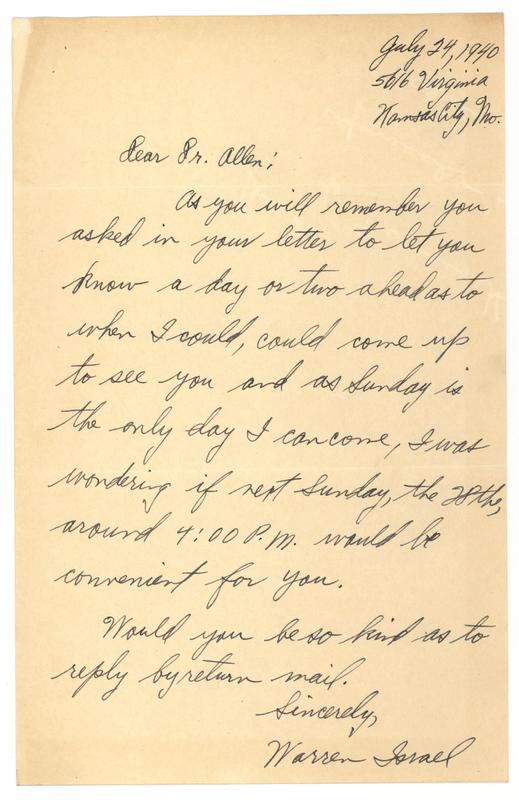 July 24, 1940
5616 Virginia
Kansas City, Mo.
Dear Dr. Allen:
As you will remember you
asked in your letter to let you
know a day or two ahead as to
when I could, could come up
to see you and as Sunday is
the only day I can come, I was
wondering if next Sunday, the 28the,
around 4:00 P.M. would be
convenient for you.
Would you be so kind as to
reply by return mail.
Sincerely,
Warren Israel